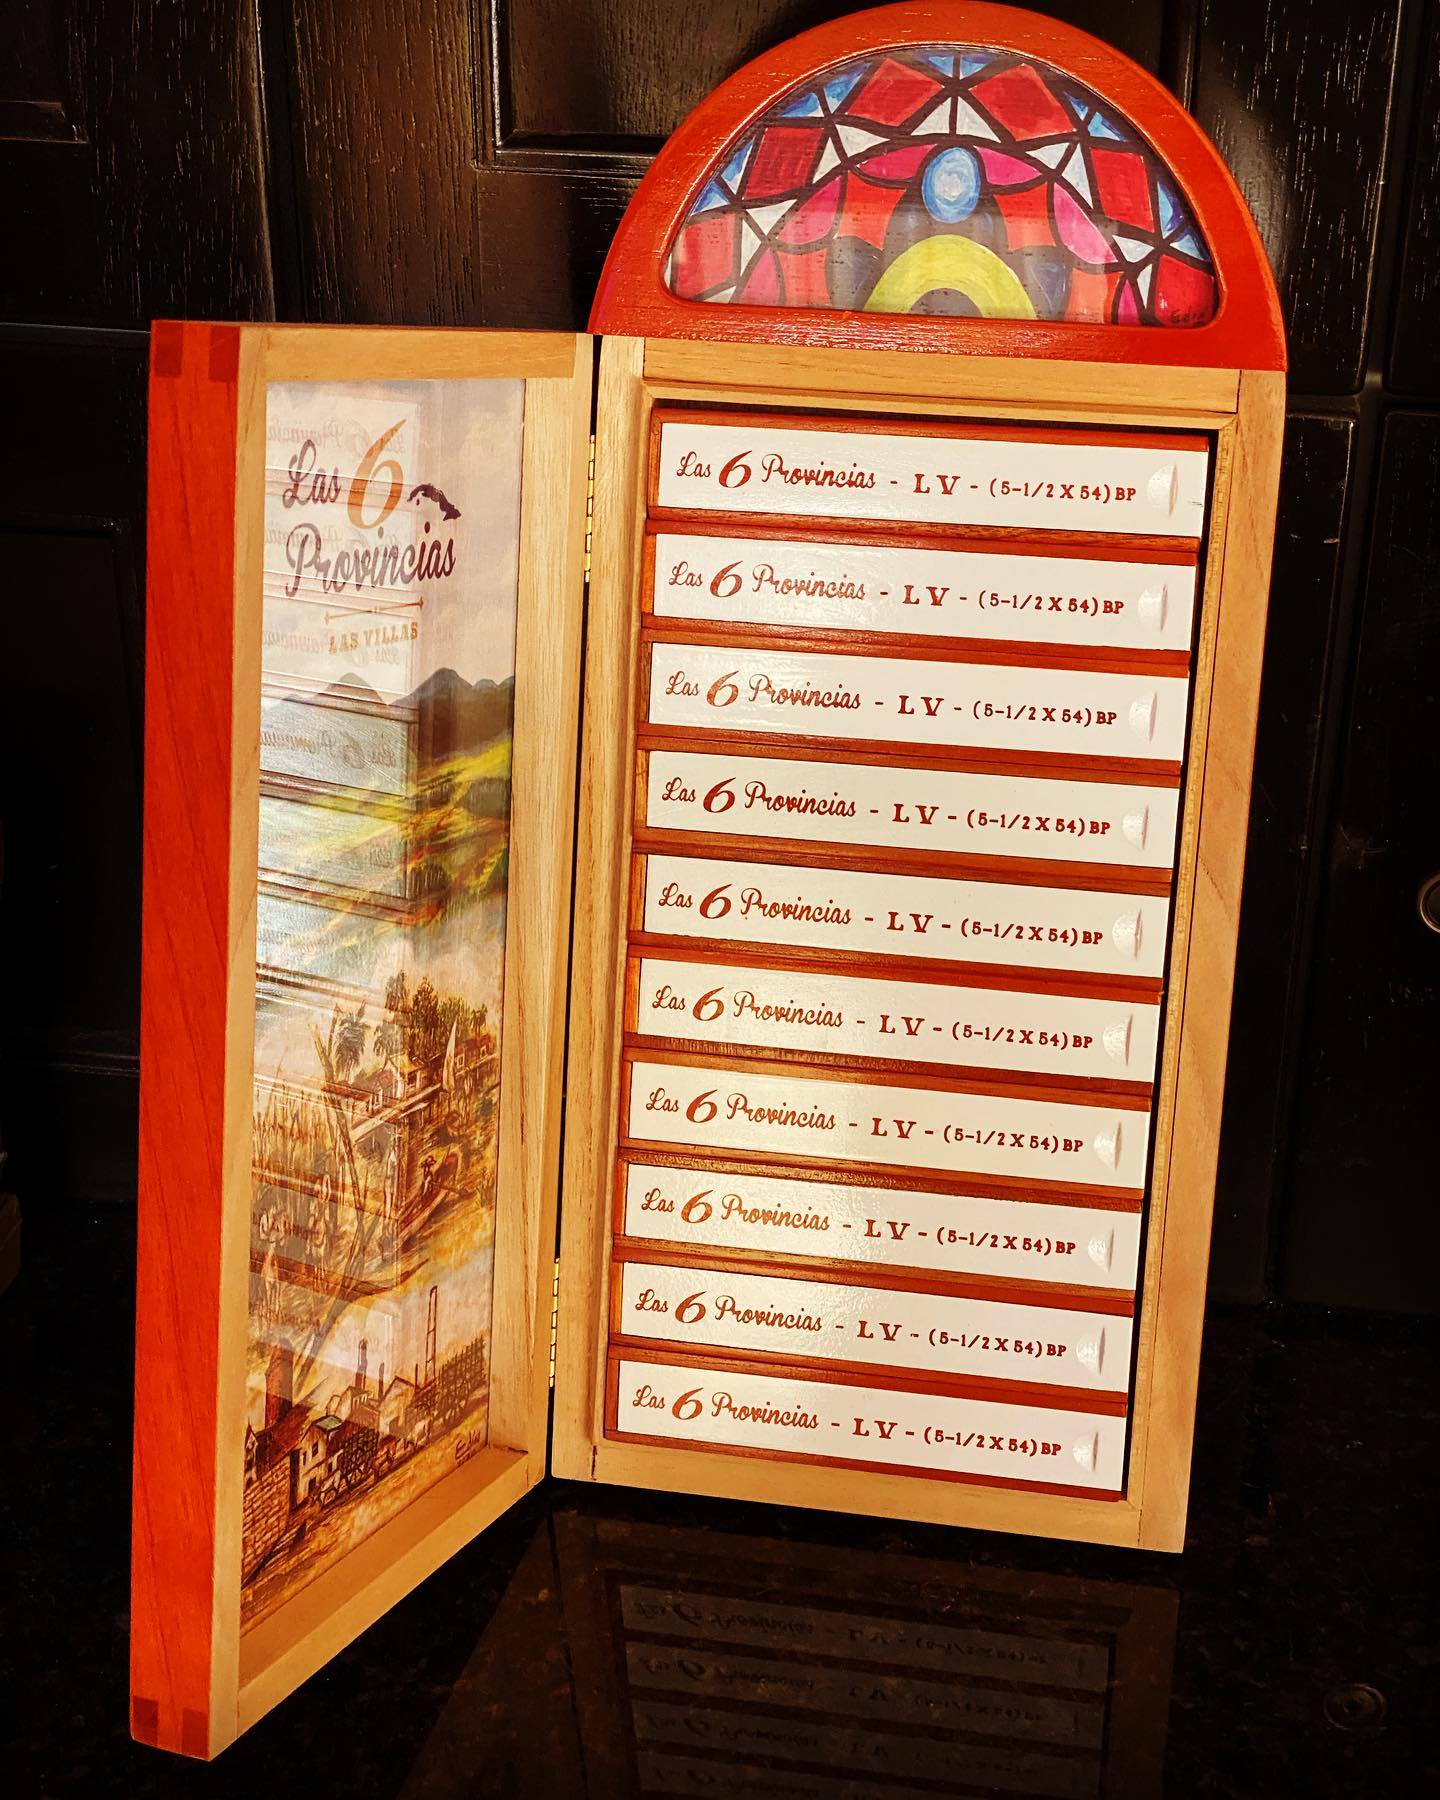 Las 6
Provincias
LAS VILLAS
Las 6 Provincias - LV - (5-1/2 X 54) BP
Las 6 Provincias - LV - (5-1/2 X 54) BP
Las 6 Provincias - LV - (5-1/2 X 54) BP
Las 6 Provincias - LV - (5-1/2 X 54) BP
Las 6 Provincias - LV - (5-1/2 X 54) BP
Las 6 Provincias - LV - (5-1/2 X 54) BP
Las 6 Provincias - LV - (5-1/2 X 54) BP
Las 6 Provincias - LV - (5-1/2 X 54) BP
Las 6 Provincias - LV - (5-1/2 X 54) BP
Las 6 Provincias - LV - (5-1/2 X 54) BP